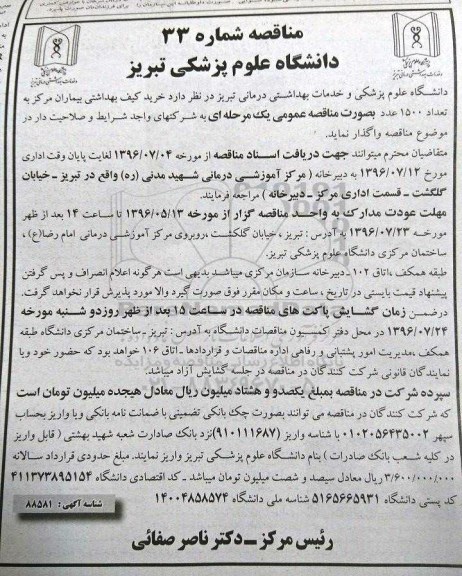 مناقصه شماره ۳۳
دانشگاه علوم پزشکی تبریز
دانشگاه علوم پزشکی و خدمات بهداشتی درمانی تبریز در نظر دارد خرید کیف بهداشتی بیماران مرکز به
تعداد ۱۵۰۰ عدد بصورت مناقصه عمومی یک مرحله ای به شرکتهای واجد شرایط و صلاحیت دار در
موضوع مناقصه واگذار نماید.
متقاضیان محترم میتوانند جهت دریافت اسناد مناقصه از مورخه ۱۳۹۶/۰۷/۰۴ لغایت پایان وقت اداری
مورخ ۱۳۹۶/۰۷/۱۲ به دبیرخانه ( مرکز آموزشی درمانی شهید مدنی (ره) واقع در تبریز - خیابان
گلگشت - قسمت اداری مرکز - دبیرخانه ) مراجعه فرمایند.
مهلت عودت مدارک به واحد مناقصه گزار از مورخه ۱۳۹۶/۰۵/۱۳ تا ساعت ۱۴ بعد از ظهر
مورخه ۱۳۹۶/۰۷/۲۳ به آدرس : تبریز ، خیابان گلگشت ،روبروی مرکز آموزشی درمانی امام رضا(ع) ،
ساختمان مرکزی دانشگاه علوم پزشکی تبریز.
طبقه همکف ،اتاق ۱۰۲ - دبیرخانه سازمان مرکزی میباشد بدیهی است هرگونه اعلام انصراف و پس گرفتن
پیشنهاد قیمت بایستی در تاریخ ، ساعت و مکان مقرر فوق صورت گیرد والا مورد پذیرش قرار نخواهد گرفت.
درضمن زمان گشایش پاکت های مناقصه در ساعت ۱۵ بعد از ظهر روزدو شنبه مورخه
۱۳۹۶/۰۷/۲۴ در محل دفتر کمیسیون مناقصات دانشگاه به آدرس : تبریز - ساختمان مرکزی دانشگاه طبقه
همکف ،مدیریت امور پشتیبانی و رفاهی اداره مناقصات و قراردادها ـ اتاق ۱۰۶ خواهد بود که حضور خود ویا
نمایندگان قانونی شرکت کنندگان در مناقصه در جلسه گشایش آزاد میباشد.
سپرده شرکت در مناقصه بمبلغ یکصدو و هشتاد میلیون ریال معادل هیجده میلیون تومان است
که شرکت کنندگان در مناقصه می توانند بصورت چک بانکی تضمینی یا ضمانت نامه بانکی ویا واریز بحساب
سپهر ۰۱۰۲۰۵۶۴۳۵۰۰۲ با شناسه واریز (۹۱۰۱۱۱۶۸۷) نزد بانک صادارت شعبه شهید بهشتی ( قابل واریز
در کلیه شعب بانک صادرات ) بنام دانشگاه علوم پزشکی تبریز واریز نمایند. مبلغ حدودی قرارداد سالانه
۳/۶۰۰/۰۰۰/۰۰۰ ریال معادل سیصد و شصت میلیون تومان میباشد - کد اقتصادی دانشگاه ۴۱۱۳۷۳۸۹۵۱۵۴
کد پستی دانشگاه ۵۱۶۵۶۶۵۹۳۱ شناسه ملی دانشگاه ۱۴۰۰۴۸۵۸۵۷۴
شناسه آگهی : ۸۸۵۸۱
رئیس مرکز - دکتر ناصر صفائی